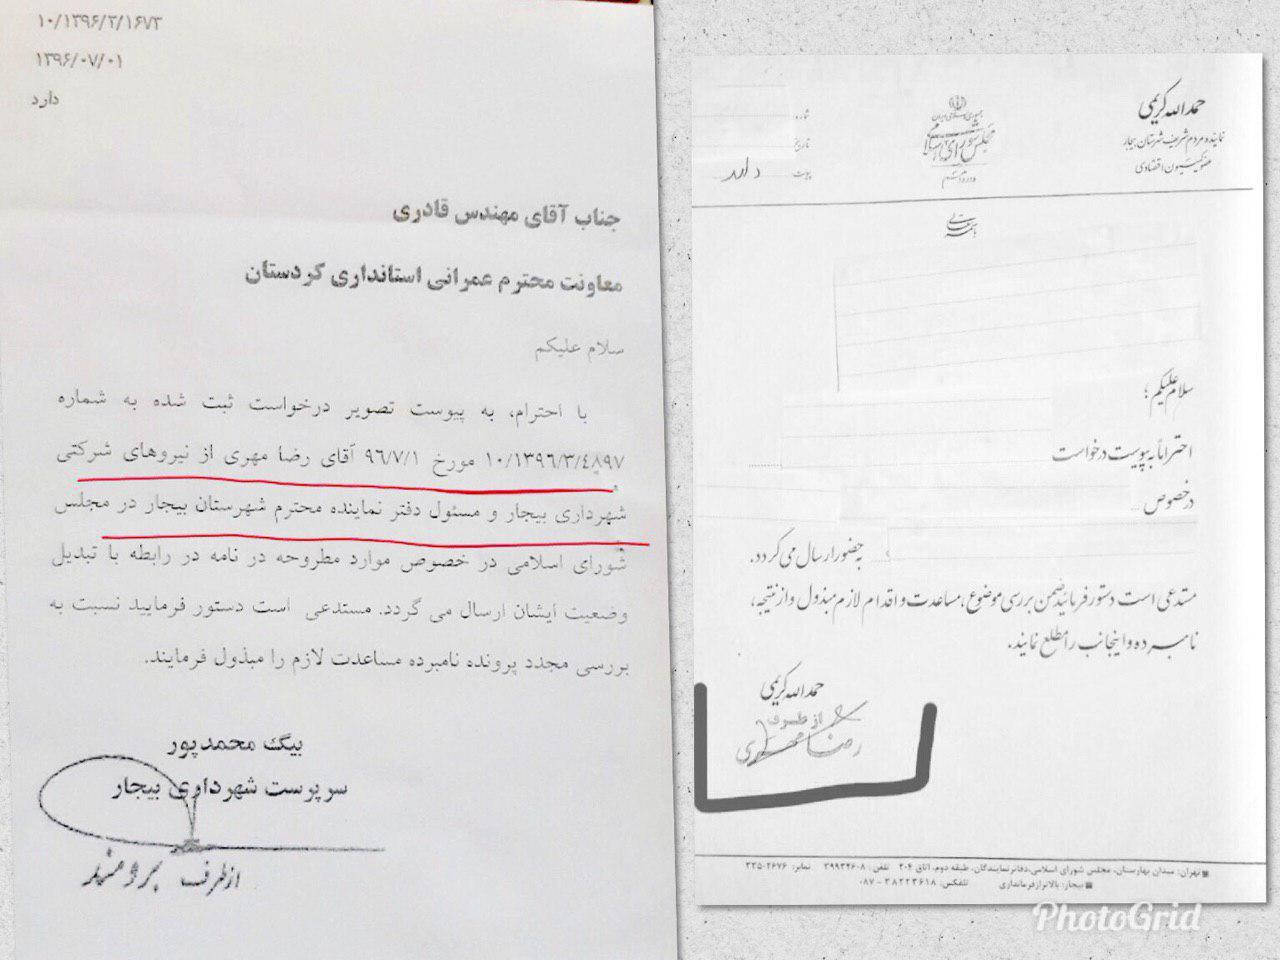 ۱۰/۱۳۹۶/۳/۱۶۷۳
۱۳۹۶/۰۷/۰۱
دارد
جناب آقای مهندس قادری
معاونت محترم عمرانی استانداری کردستان
سلام علیکم
با احترام، به پیوست تصویر درخواست ثبت شده به شماره
۱۰/۱۳۹۶/۳/۴۸۹۷ مورخ ۹۶/۷/۱ آقای رضا مهری از نیروهای شرکتی
شهرداری بیجار و مسئول دفتر نماینده محترم شهرستان بیجار در مجلس
شورای اسلامی در خصوص موارد مطروحه در نامه در رابطه با تبدیل
وضعیت ایشان ارسال می گردد. مستدعی است دستور فرمایید نسبت به
بررسی مجدد پرونده نامبرده مساعدت لازم را مبذول فرمایند.
بیگ محمدپور
سرپرست شهرداری بیجار
از طرف برومند
حمدالله کریمی
نماینده مردم شریف شهرستان بیجار
عضو کمیسیون اقتصادی
جمهوری اسلامی ایران
مجلس شورای اسلامی
شماره
تاریخ
پیوست دارد
باسمه تعالی
سلام علیکم؛
احتراماً به پیوست درخواست
در خصوص
به حضور ارسال می گردد.
مستدعی است دستور فرمائید ضمن بررسی موضوع، مساعدت و اقدام لازم مبذول و از نتیجه،
نامبرده و اینجانب را مطلع نمایند.
حمدالله کریمی
از طرف
رضا مهری
تهران: میدان بهارستان، مجلس شورای اسلامی، دفاتر نمایندگان، طبقه دوم، اتاق ۲۰۴ تلفن: ۳۹۹۳۴۶۰۸ نمابر: ۳۳۵۰۲۶۷۶
بیجار: بالاتر از فرمانداری تلفکس: ۳۸۲۲۳۶۱۸ - ۰۸۷
PhotoGrid